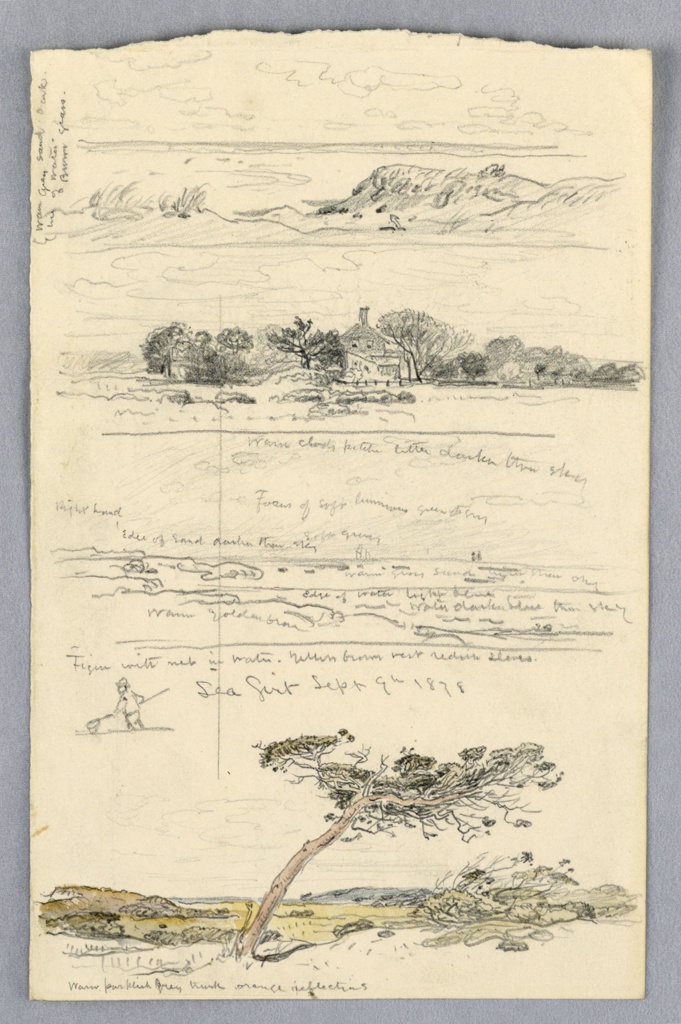 Warm Grey sand dark
line of water.
& Burnt grass.
Warm clouds little darker than sky
Focus of soft luminous green & grey
Bright Sand
Edge of Sand darker than sky
Soft grey
Warm grey sand than sky
edge of water light
Water darker blue than sky
Warm golden brown
Figure with net in water. Yellow brown vest redish sleeves.
Sea Girt Sept 9th 1878
Warm purplish Grey trunk orange reflections